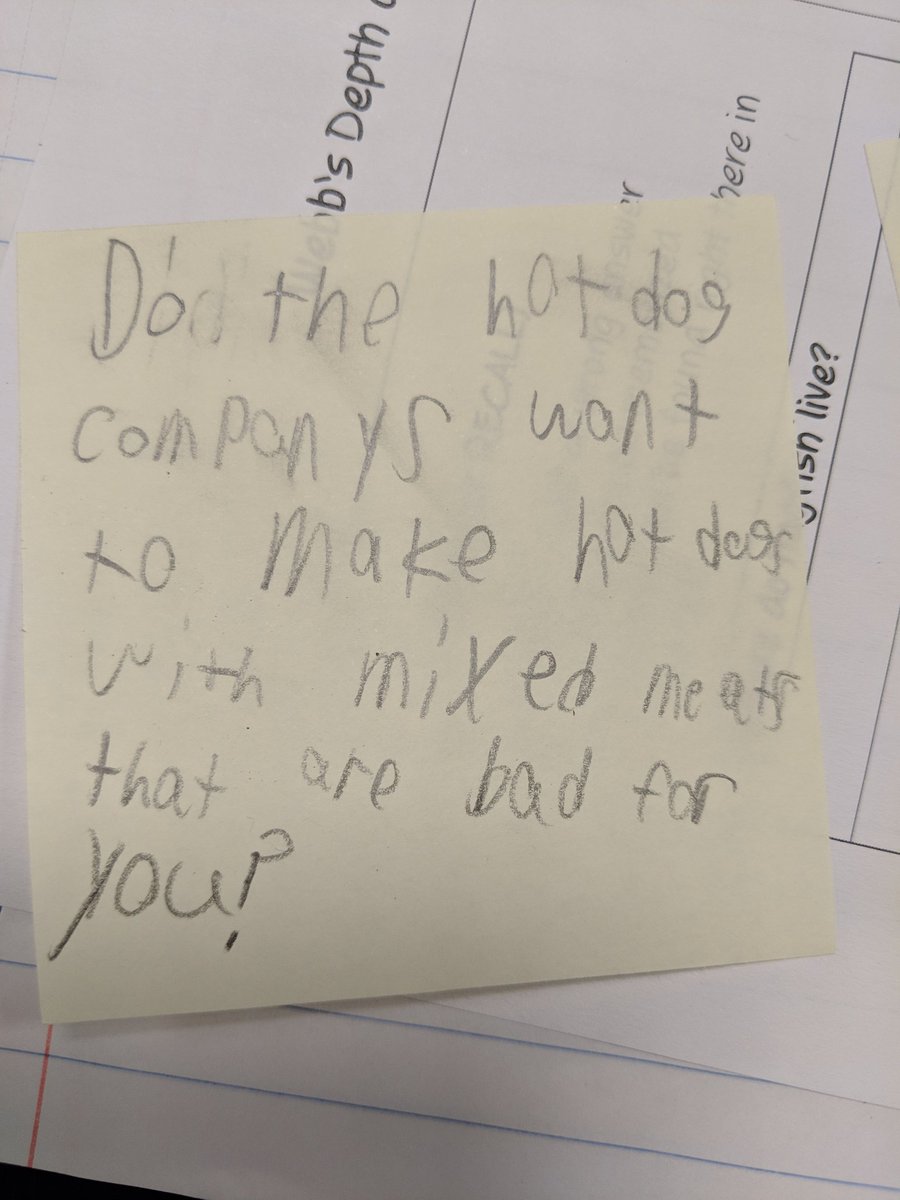 Do the hot dog
companys want
to make hot dogs
with mixed meats
that are bad for
you?
bb's Depth
here in
fish live?